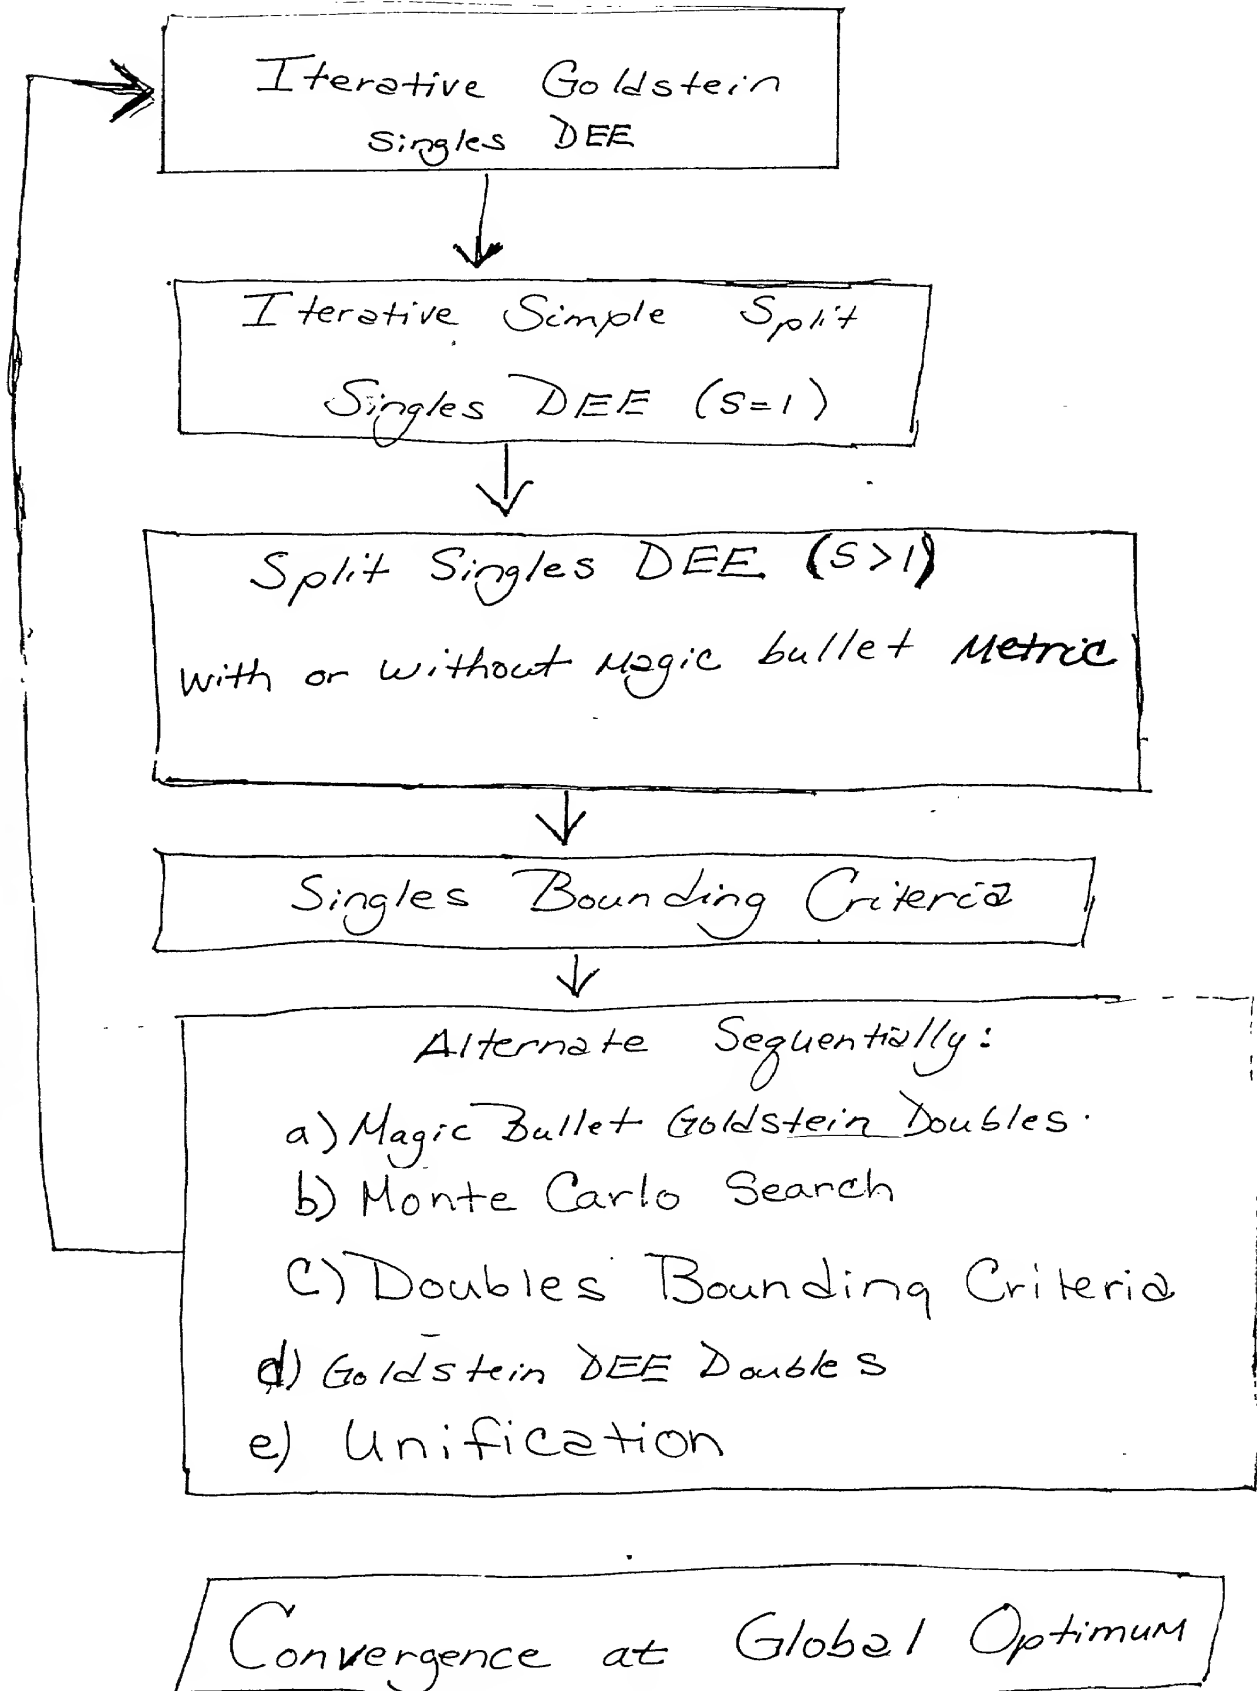 Iterative Goldstein
Singles DEE
Iterative Simple Split
Singles DEE (S=1)
Split Singles DEE (S>1)
with or without Magic bullet Metric
Singles Bounding Criteria
Alternate Sequentially:
a) Magic Bullet Goldstein Doubles.
b) Monte Carlo Search
C) Doubles Bounding Criteria
d) Goldstein DEE Doubles
e) Unification
Convergence at Global Optimum